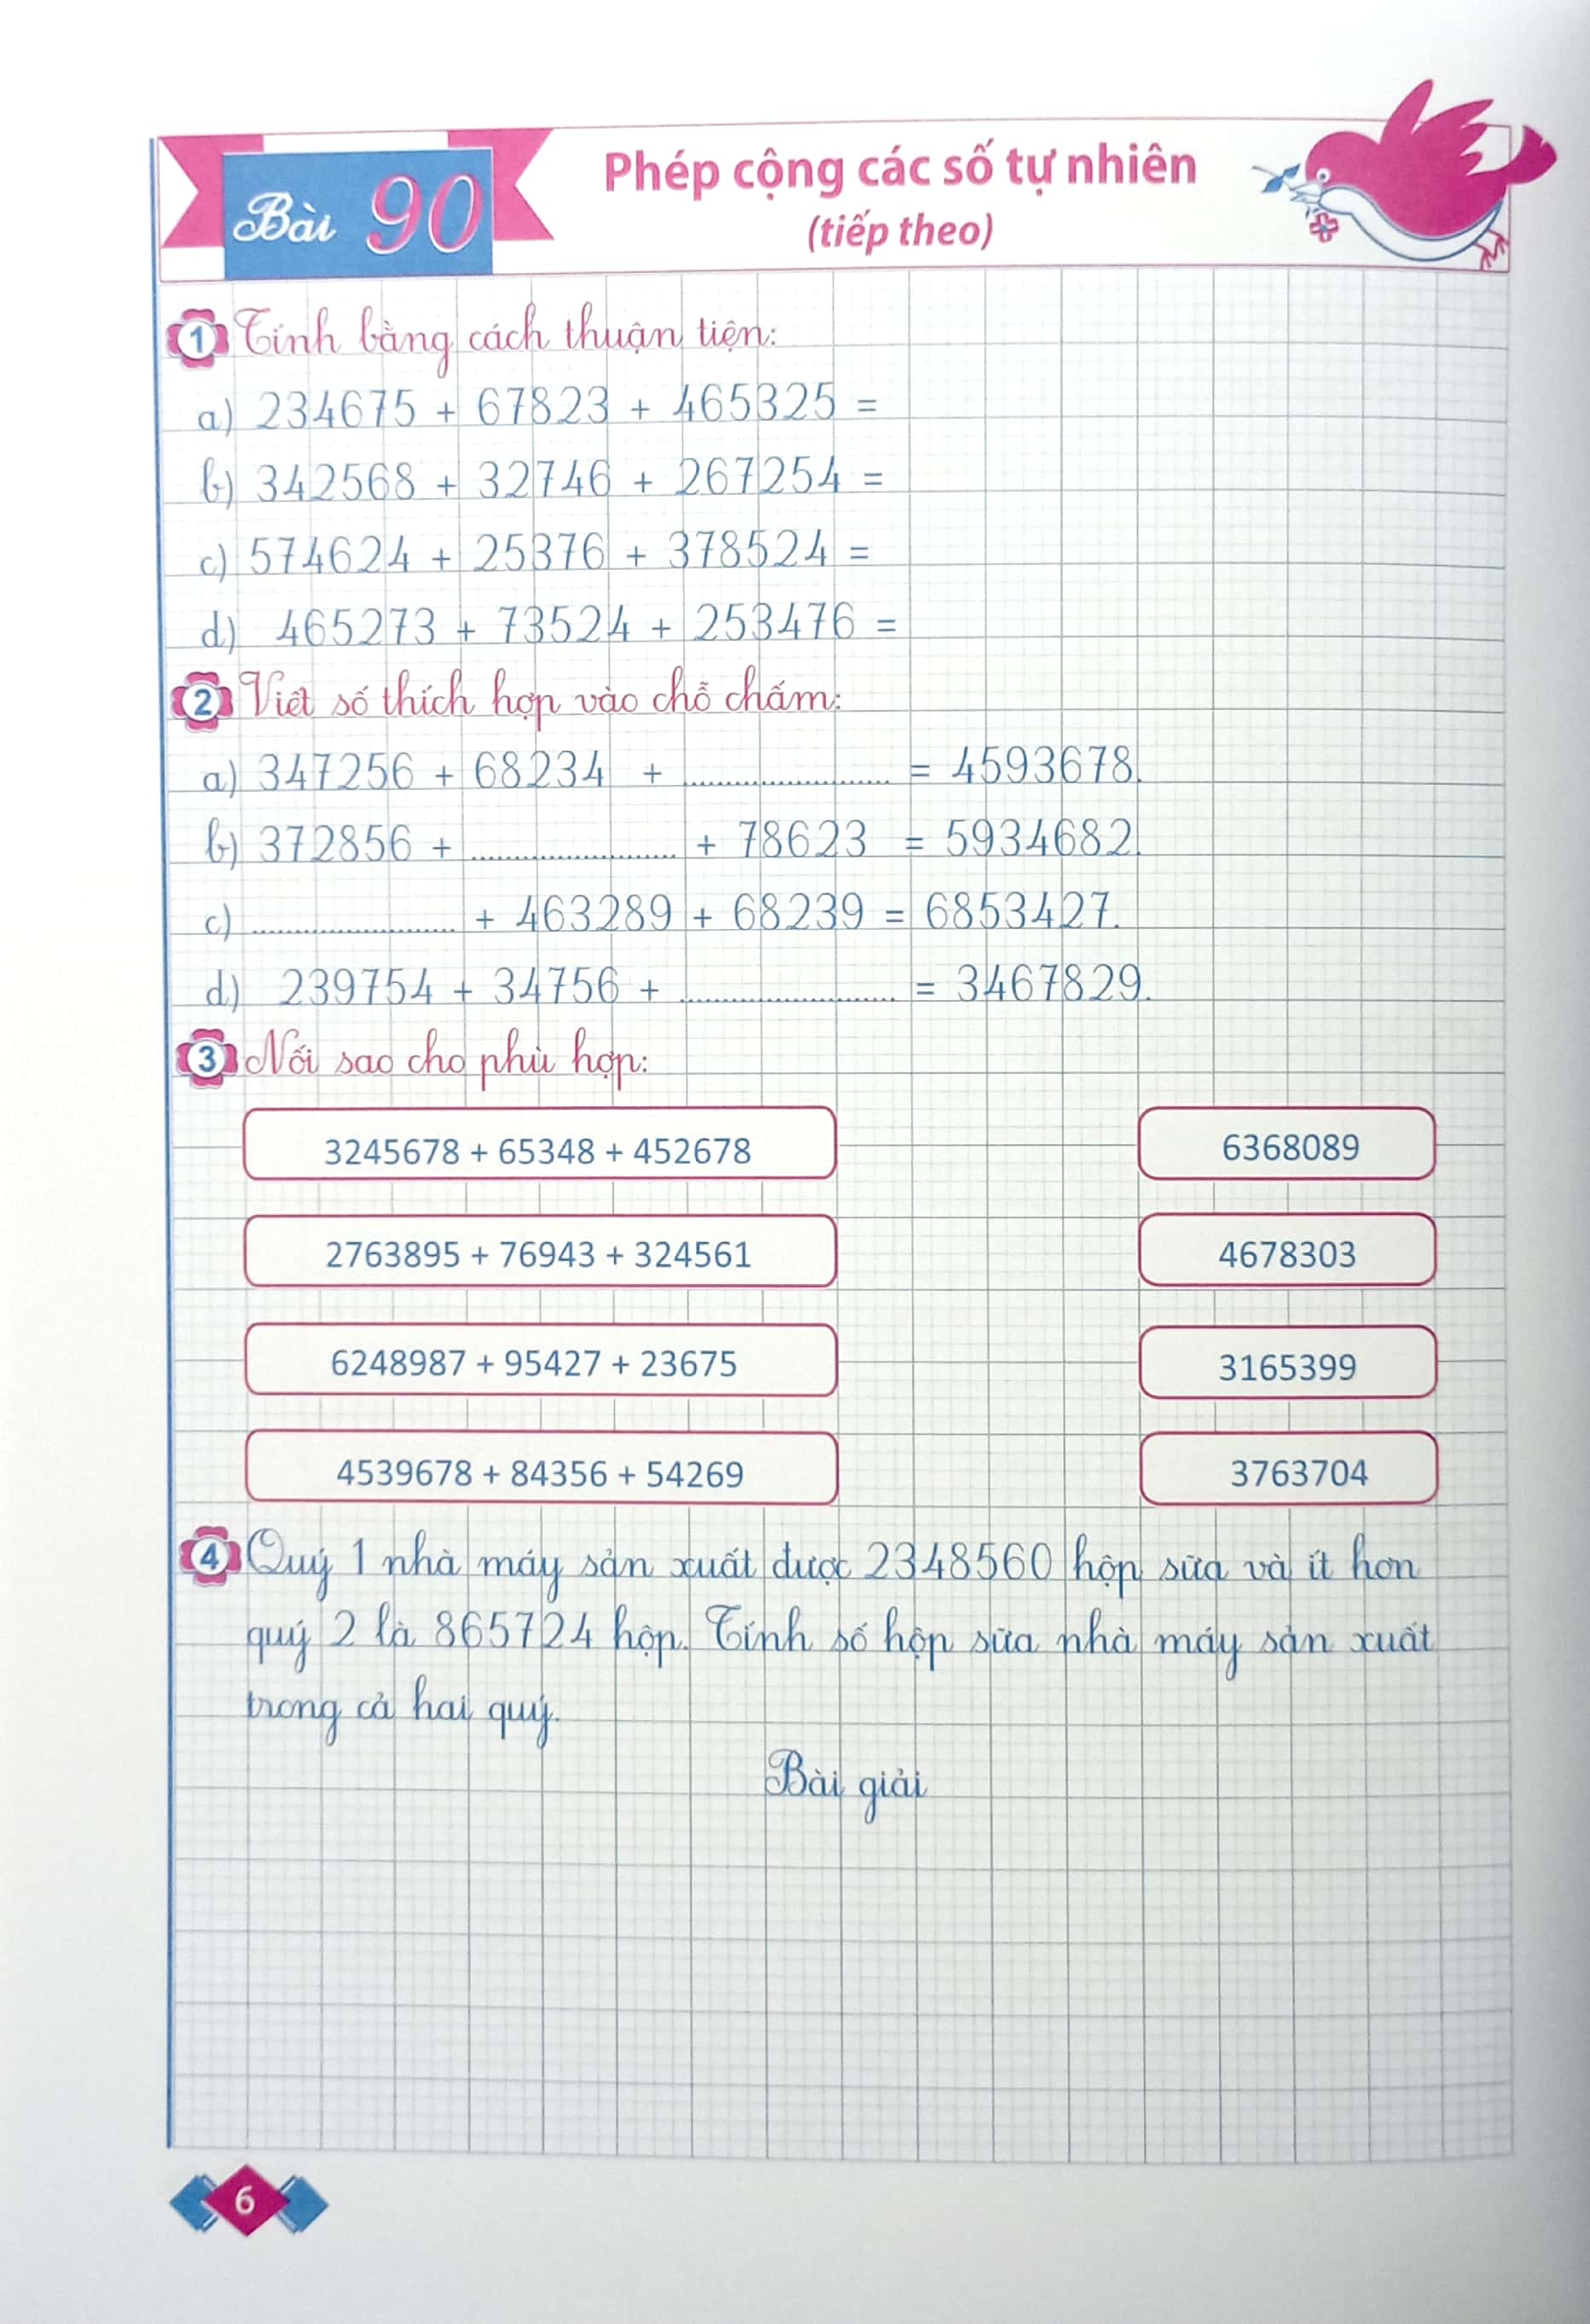 Bài 90
Phép cộng các số tự nhiên
(tiếp theo)
1 Tính bằng cách thuận tiện:
a) 234675 + 67823 + 465325 =
b) 342568 + 32746 + 267254 =
c) 574624 + 25376 + 378524 =
d) 465273 + 73524 + 253476 =
2 Viết số thích hợp vào chỗ chấm:
a) 347256 + 68234 + .................... = 4593678.
b) 372856 + .................... + 78623 = 5934682.
c) .................... + 463289 + 68239 = 6853427.
d) 239754 + 34756 + .................... = 3467829.
3 Nối sao cho phù hợp:
3245678 + 65348 + 452678 6368089
2763895 + 76943 + 324561 4678303
6248987 + 95427 + 23675 3165399
4539678 + 84356 + 54269 3763704
4 Quý 1 nhà máy sản xuất được 2348560 hộp sữa và ít hơn
quý 2 là 865724 hộp. Tính số hộp sữa nhà máy sản xuất
trong cả hai quý.
Bài giải
6